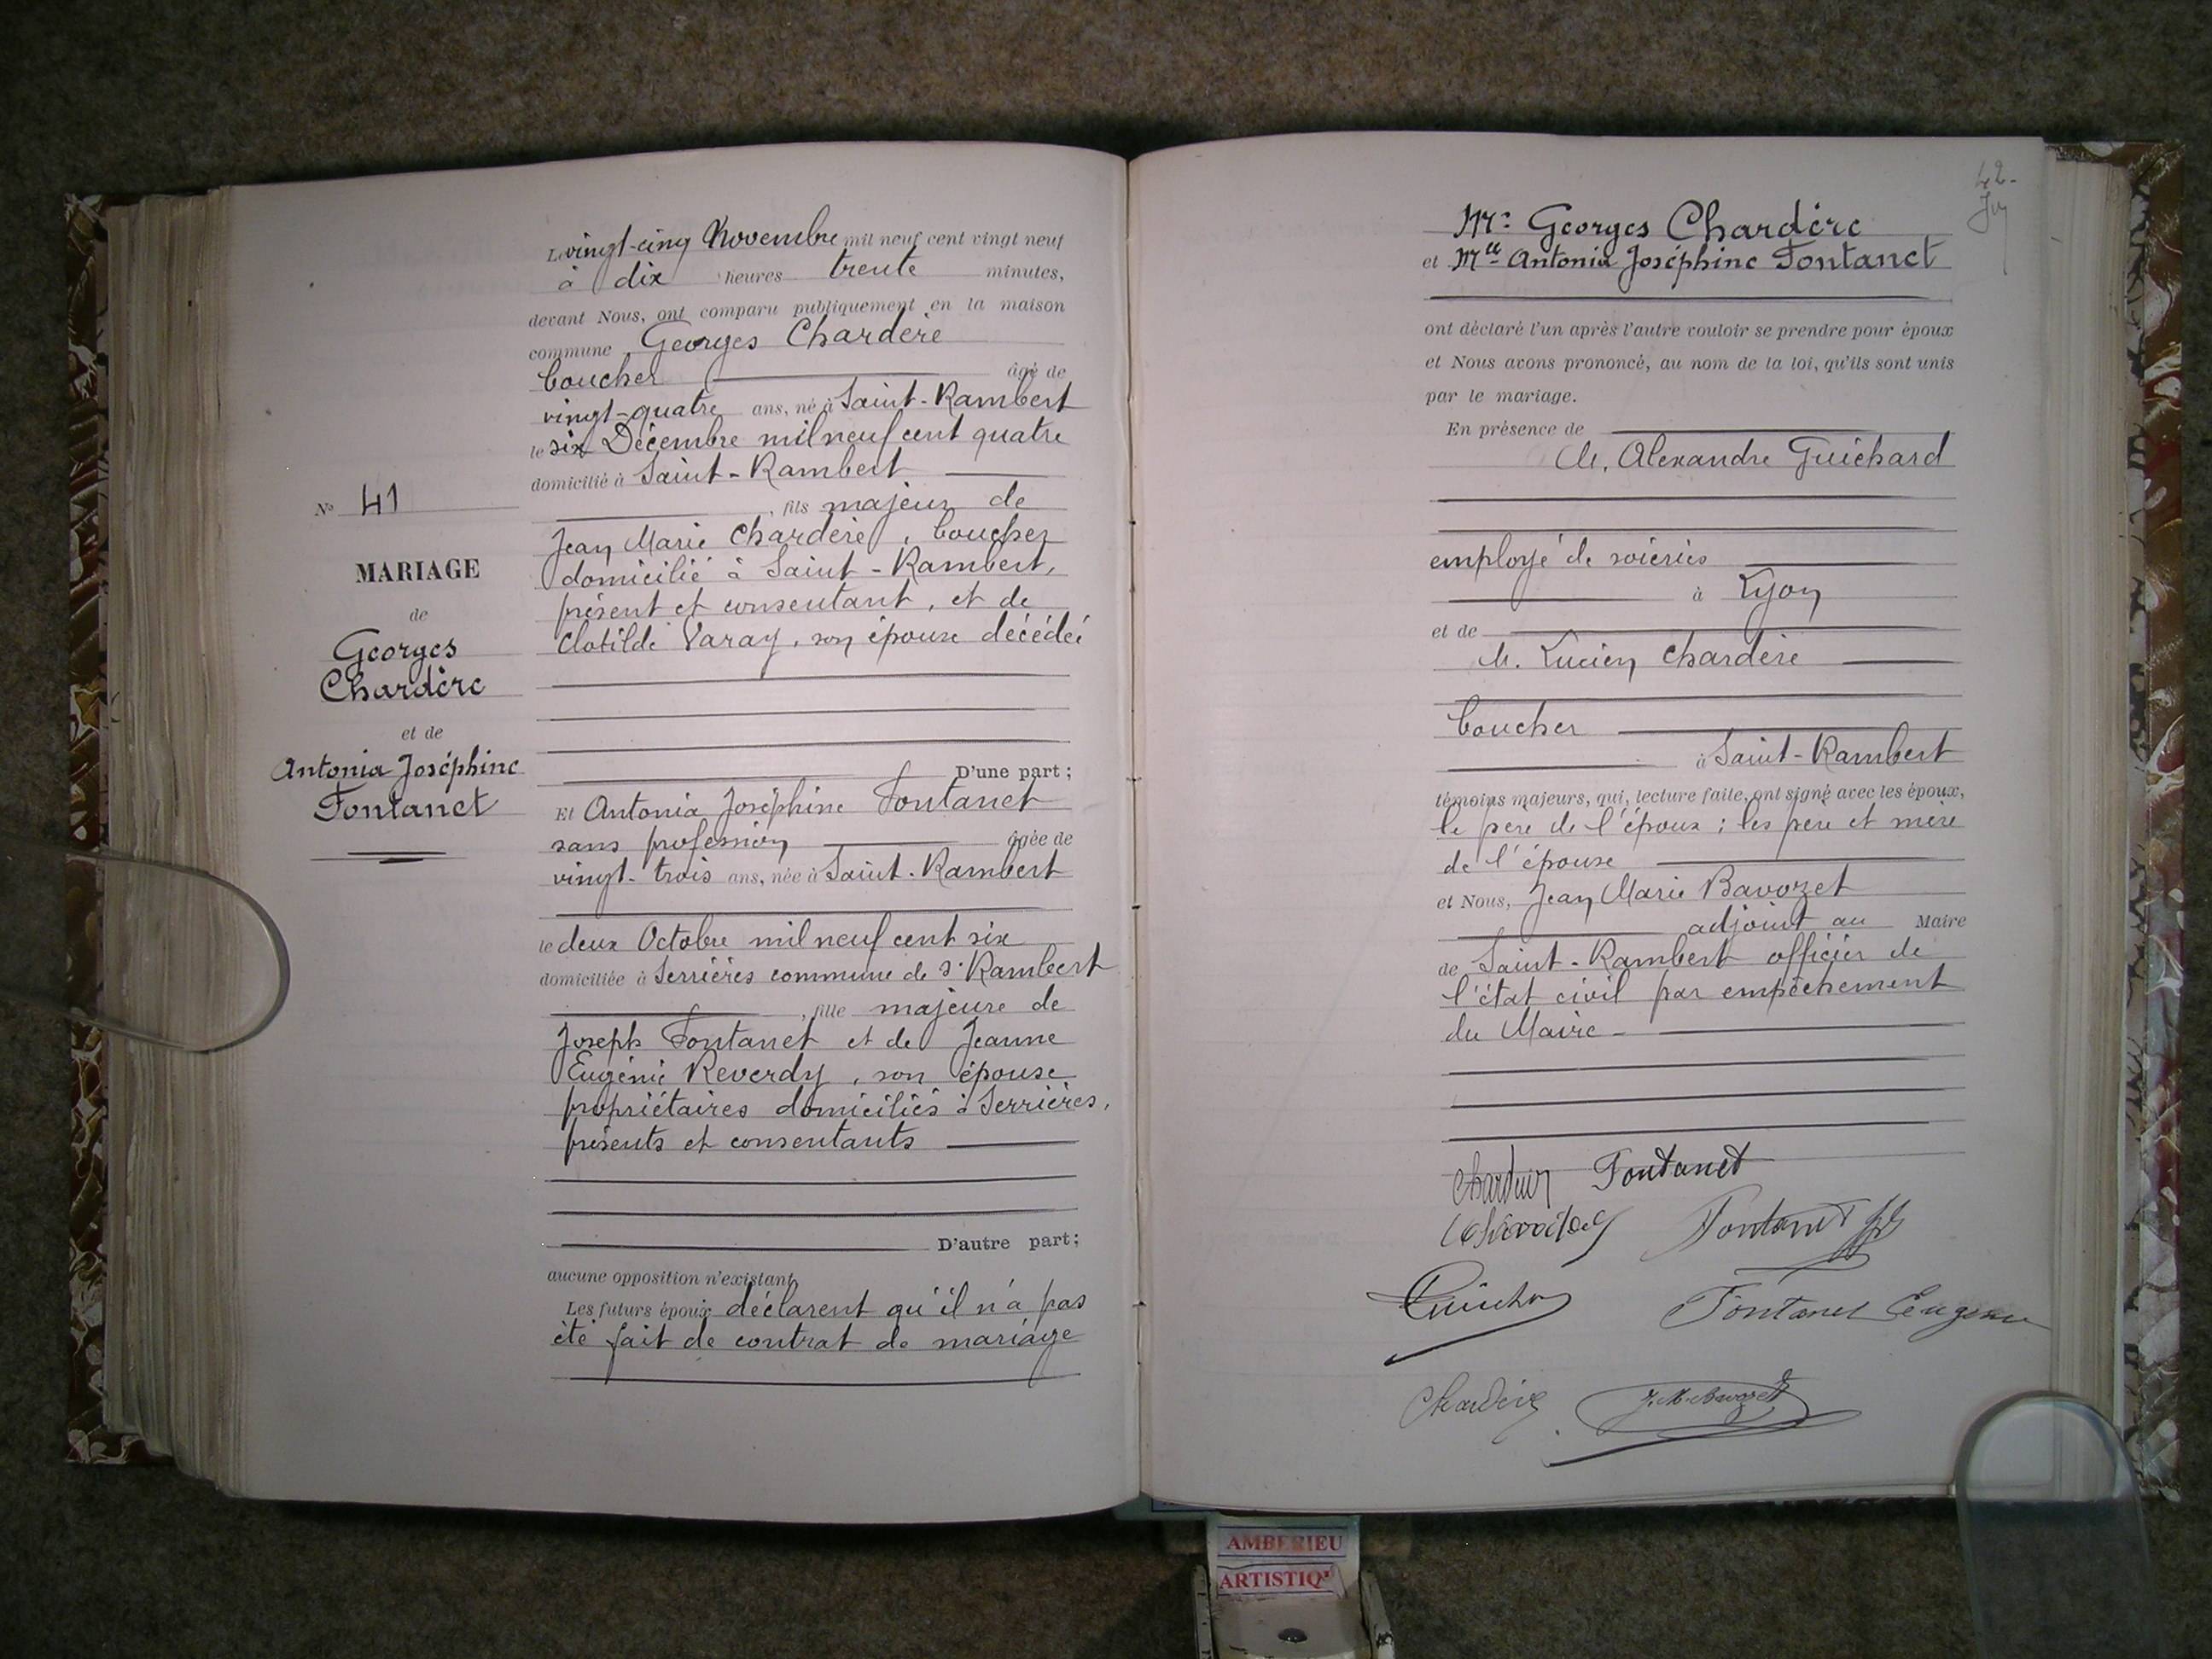 Le vingt-cinq Novembre mil neuf cent vingt neuf
à dix heures trente minutes,
devant Nous, ont comparu publiquement en la maison
commune Georges Chardère
boucher âgé de
vingt-quatre ans, né à Saint-Rambert
le six Décembre mil neuf cent quatre
domicilié à Saint-Rambert
, fils majeur de
Jean Marie Chardère, boucher
domicilié à Saint-Rambert,
présent et consentant, et de
Clotilde Varay, son épouse décédée
D'une part;
Et Antonia Joséphine Fontanet
sans profession âgée de
vingt-trois ans, née à Saint-Rambert
le deux Octobre mil neuf cent six
domiciliée à Serrières commune de St Rambert
, fille majeure de
Joseph Fontanet et de Jeanne
Eugénie Reverdy, son épouse
propriétaires domiciliés à Serrières,
présents et consentants
D'autre part;
aucune opposition n'existant
Les futurs époux déclarent qu'il n'a pas
été fait de contrat de mariage
No 41
MARIAGE
de
Georges
Chardère
et de
Antonia Joséphine
Fontanet
42
Mr Georges Chardère
et Mlle Antonia Joséphine Fontanet
ont déclaré l'un après l'autre vouloir se prendre pour époux
et Nous avons prononcé, au nom de la loi, qu'ils sont unis
par le mariage.
En présence de
M. Alexandre Guichard
employé de soieries
à Lyon
et de
M. Lucien Chardère
boucher
à Saint-Rambert
témoins majeurs, qui, lecture faite, ont signé avec les époux,
le père de l'époux; les père et mère
de l'épouse
et Nous, Jean Marie Bavozet
adjoint au Maire
de Saint-Rambert officier de
l'état civil par empêchement
du Maire
Fontanet
Fontanet
Fontanet Eugénie
Chardère J. M. Bavozet
AMBERIEU
ARTISTIQ